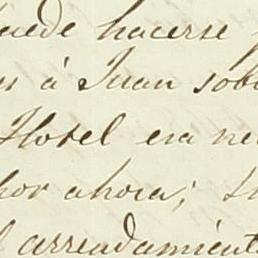 uede hacerse
à Juan sob
Hotel era ne
por ahora;
arrendamient